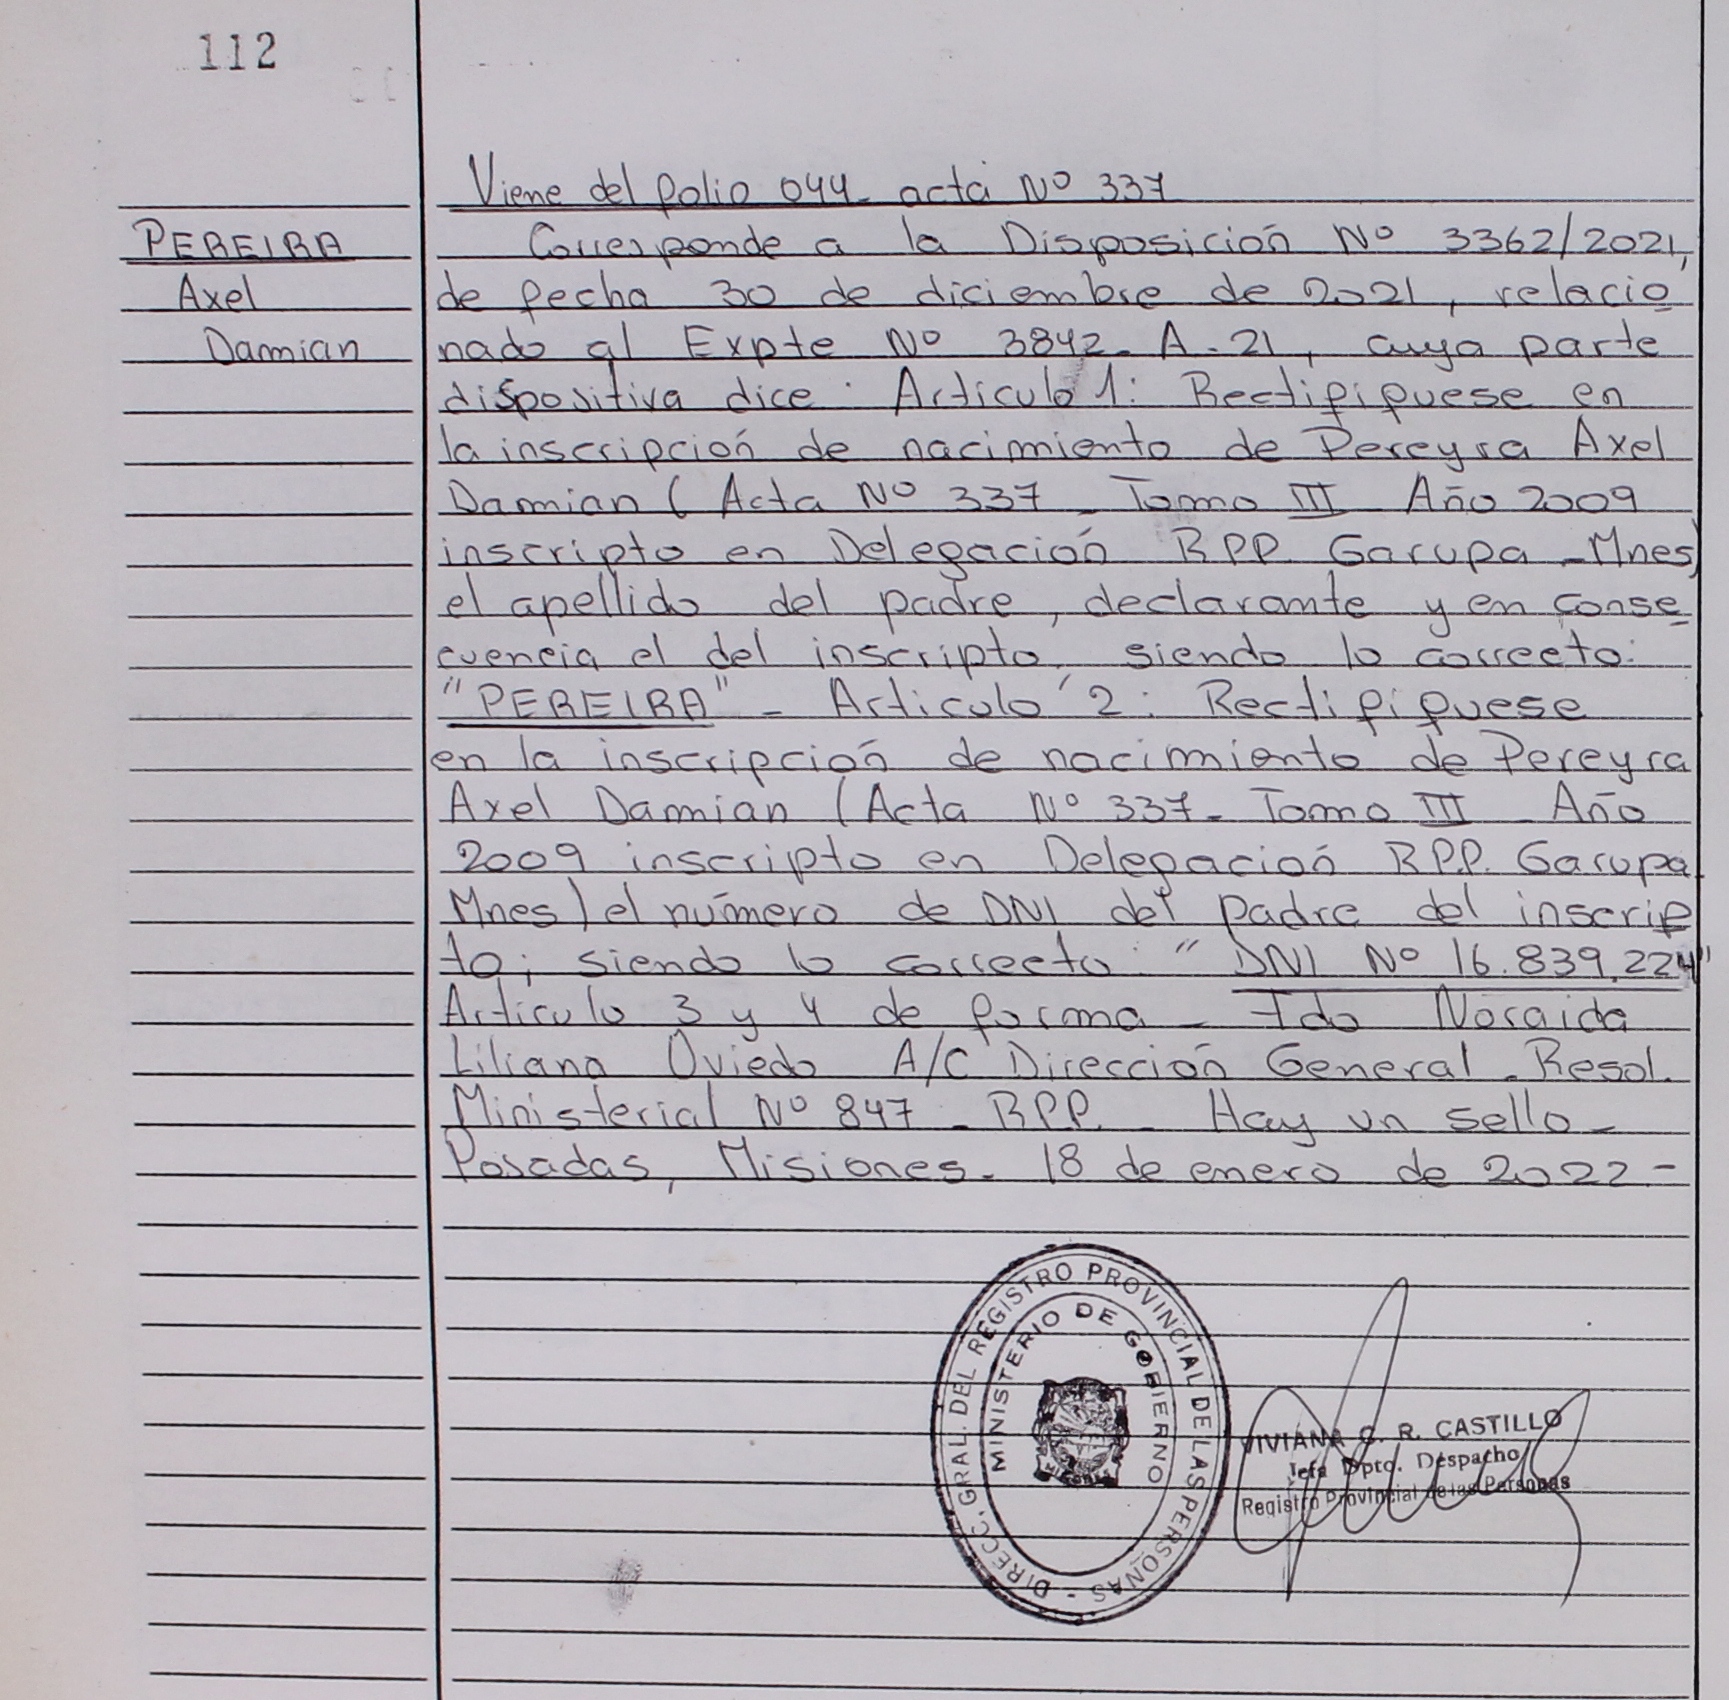 112
Viene del folio 044- acta Nº 337
PEREIRA
Axel
Damian
Corresponde a la Disposición Nº 3362/2021,
de fecha 30 de diciembre de 2021, relacio
nado al Expte Nº 3842- A - 21, cuya parte
dispositiva dice : Articulo 1: Rectifiquese en
la inscripción de nacimiento de Pereyra Axel
Damian ( Acta Nº 337 - Tomo III Año 2009
inscripto en Delegación RPP. Garupa - Mnes)
el apellido del padre, declarante y en conse
cuencia el del inscripto, siendo lo correcto:
"PEREIRA" - Articulo 2 : Rectifiquese
en la inscripción de nacimiento de Pereyra
Axel Damian (Acta Nº 337- Tomo III Año
2009 inscripto en Delegación R.P.P. Garupa
Mnes) el número de DNI del padre del inscrip
to; siendo lo correcto : "DNI Nº 16.839.224"
Articulo 3 y 4 de forma - Fdo Noraida
Liliana Oviedo A/C Dirección General - Resol.
Ministerial Nº 847 - RPP. - Hay un sello -
Posadas, Misiones - 18 de enero de 2022 -
DIRECC. GRAL. DEL REGISTRO PROVINCIAL DE LAS PERSONAS -
MINISTERIO DE GOBIERNO
MISIONES
VIVIANA C. R. CASTILLO
Jefa Dpto. Despacho
Registro Provincial de las Personas